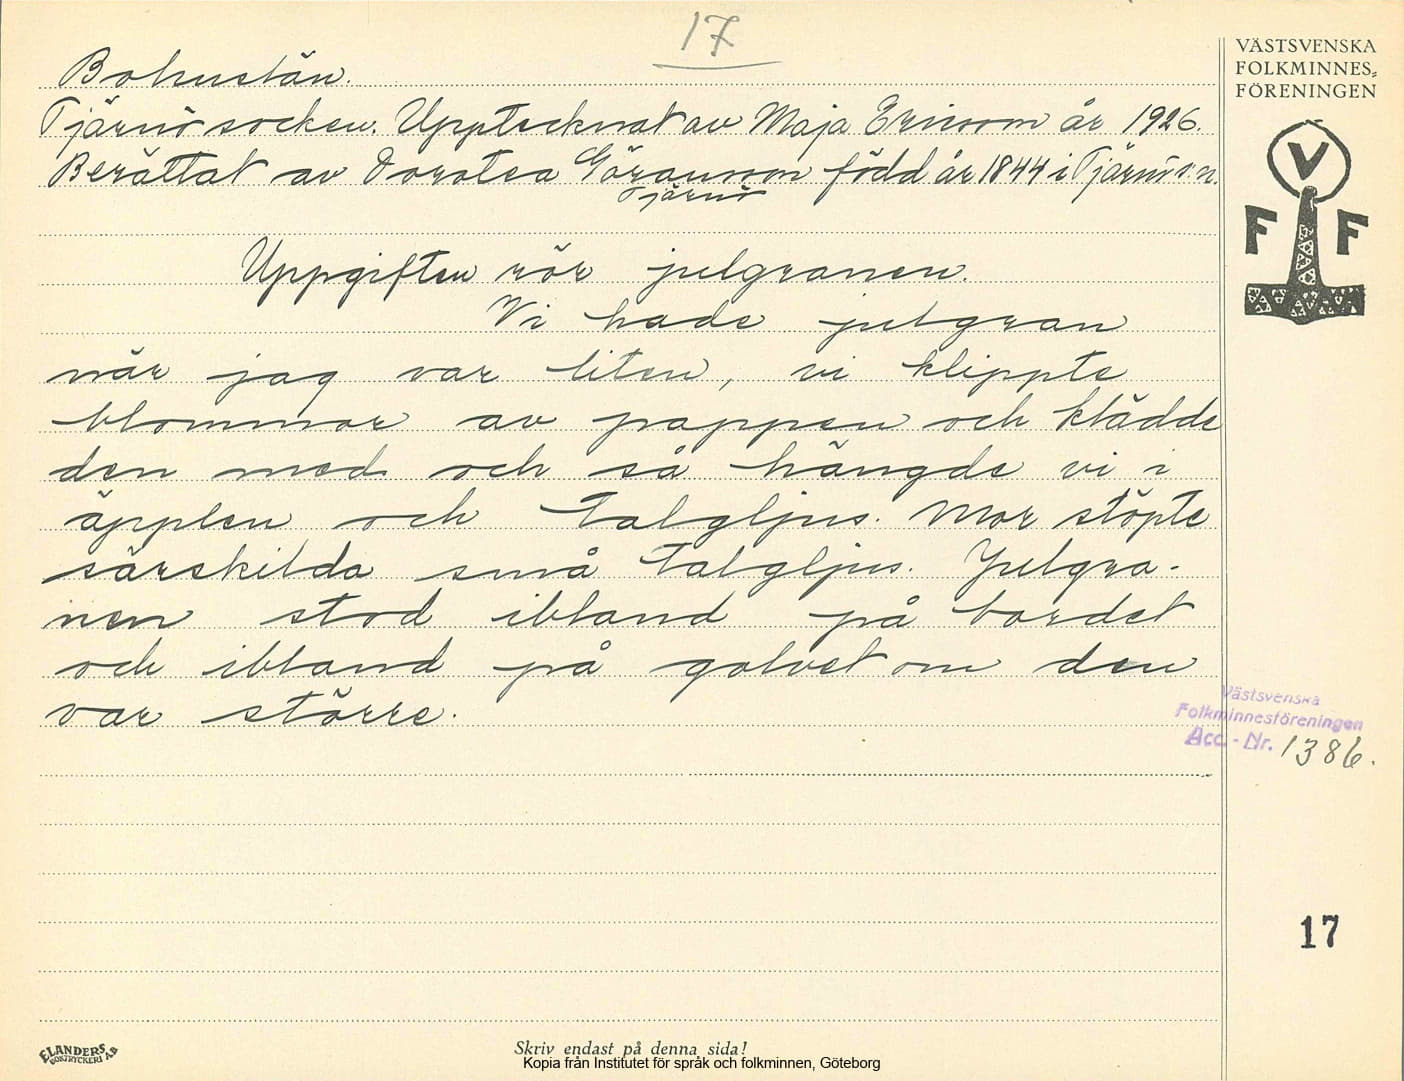 17
Bohuslän.
Tjärnö socken. Upptecknat av Maja Ericson år 1926.
Berättat av Dorotea Göransson född år 1844 i Tjärnö s:n.
Tjärnö
Uppgiften rör julgranen.
Vi hade julgran
när jag var liten, vi klippte
blommor av pappen och klädde
den med och så hängde vi i
äpplen och talgljus. Mor stöpte
särskilda små talgljus. Julgra-
nen stod ibland på bordet
och ibland på golvet om den
var större.
VÄSTSVENSKA
FOLKMINNES-
FÖRENINGEN
V
F F
Västsvenska
Folkminnesföreningen
Acc.-Nr. 1386.
17
ELANDERS
BOKTRYCKERI A.B
Skriv endast på denna sida!
Kopia från Institutet för språk och folkminnen, Göteborg